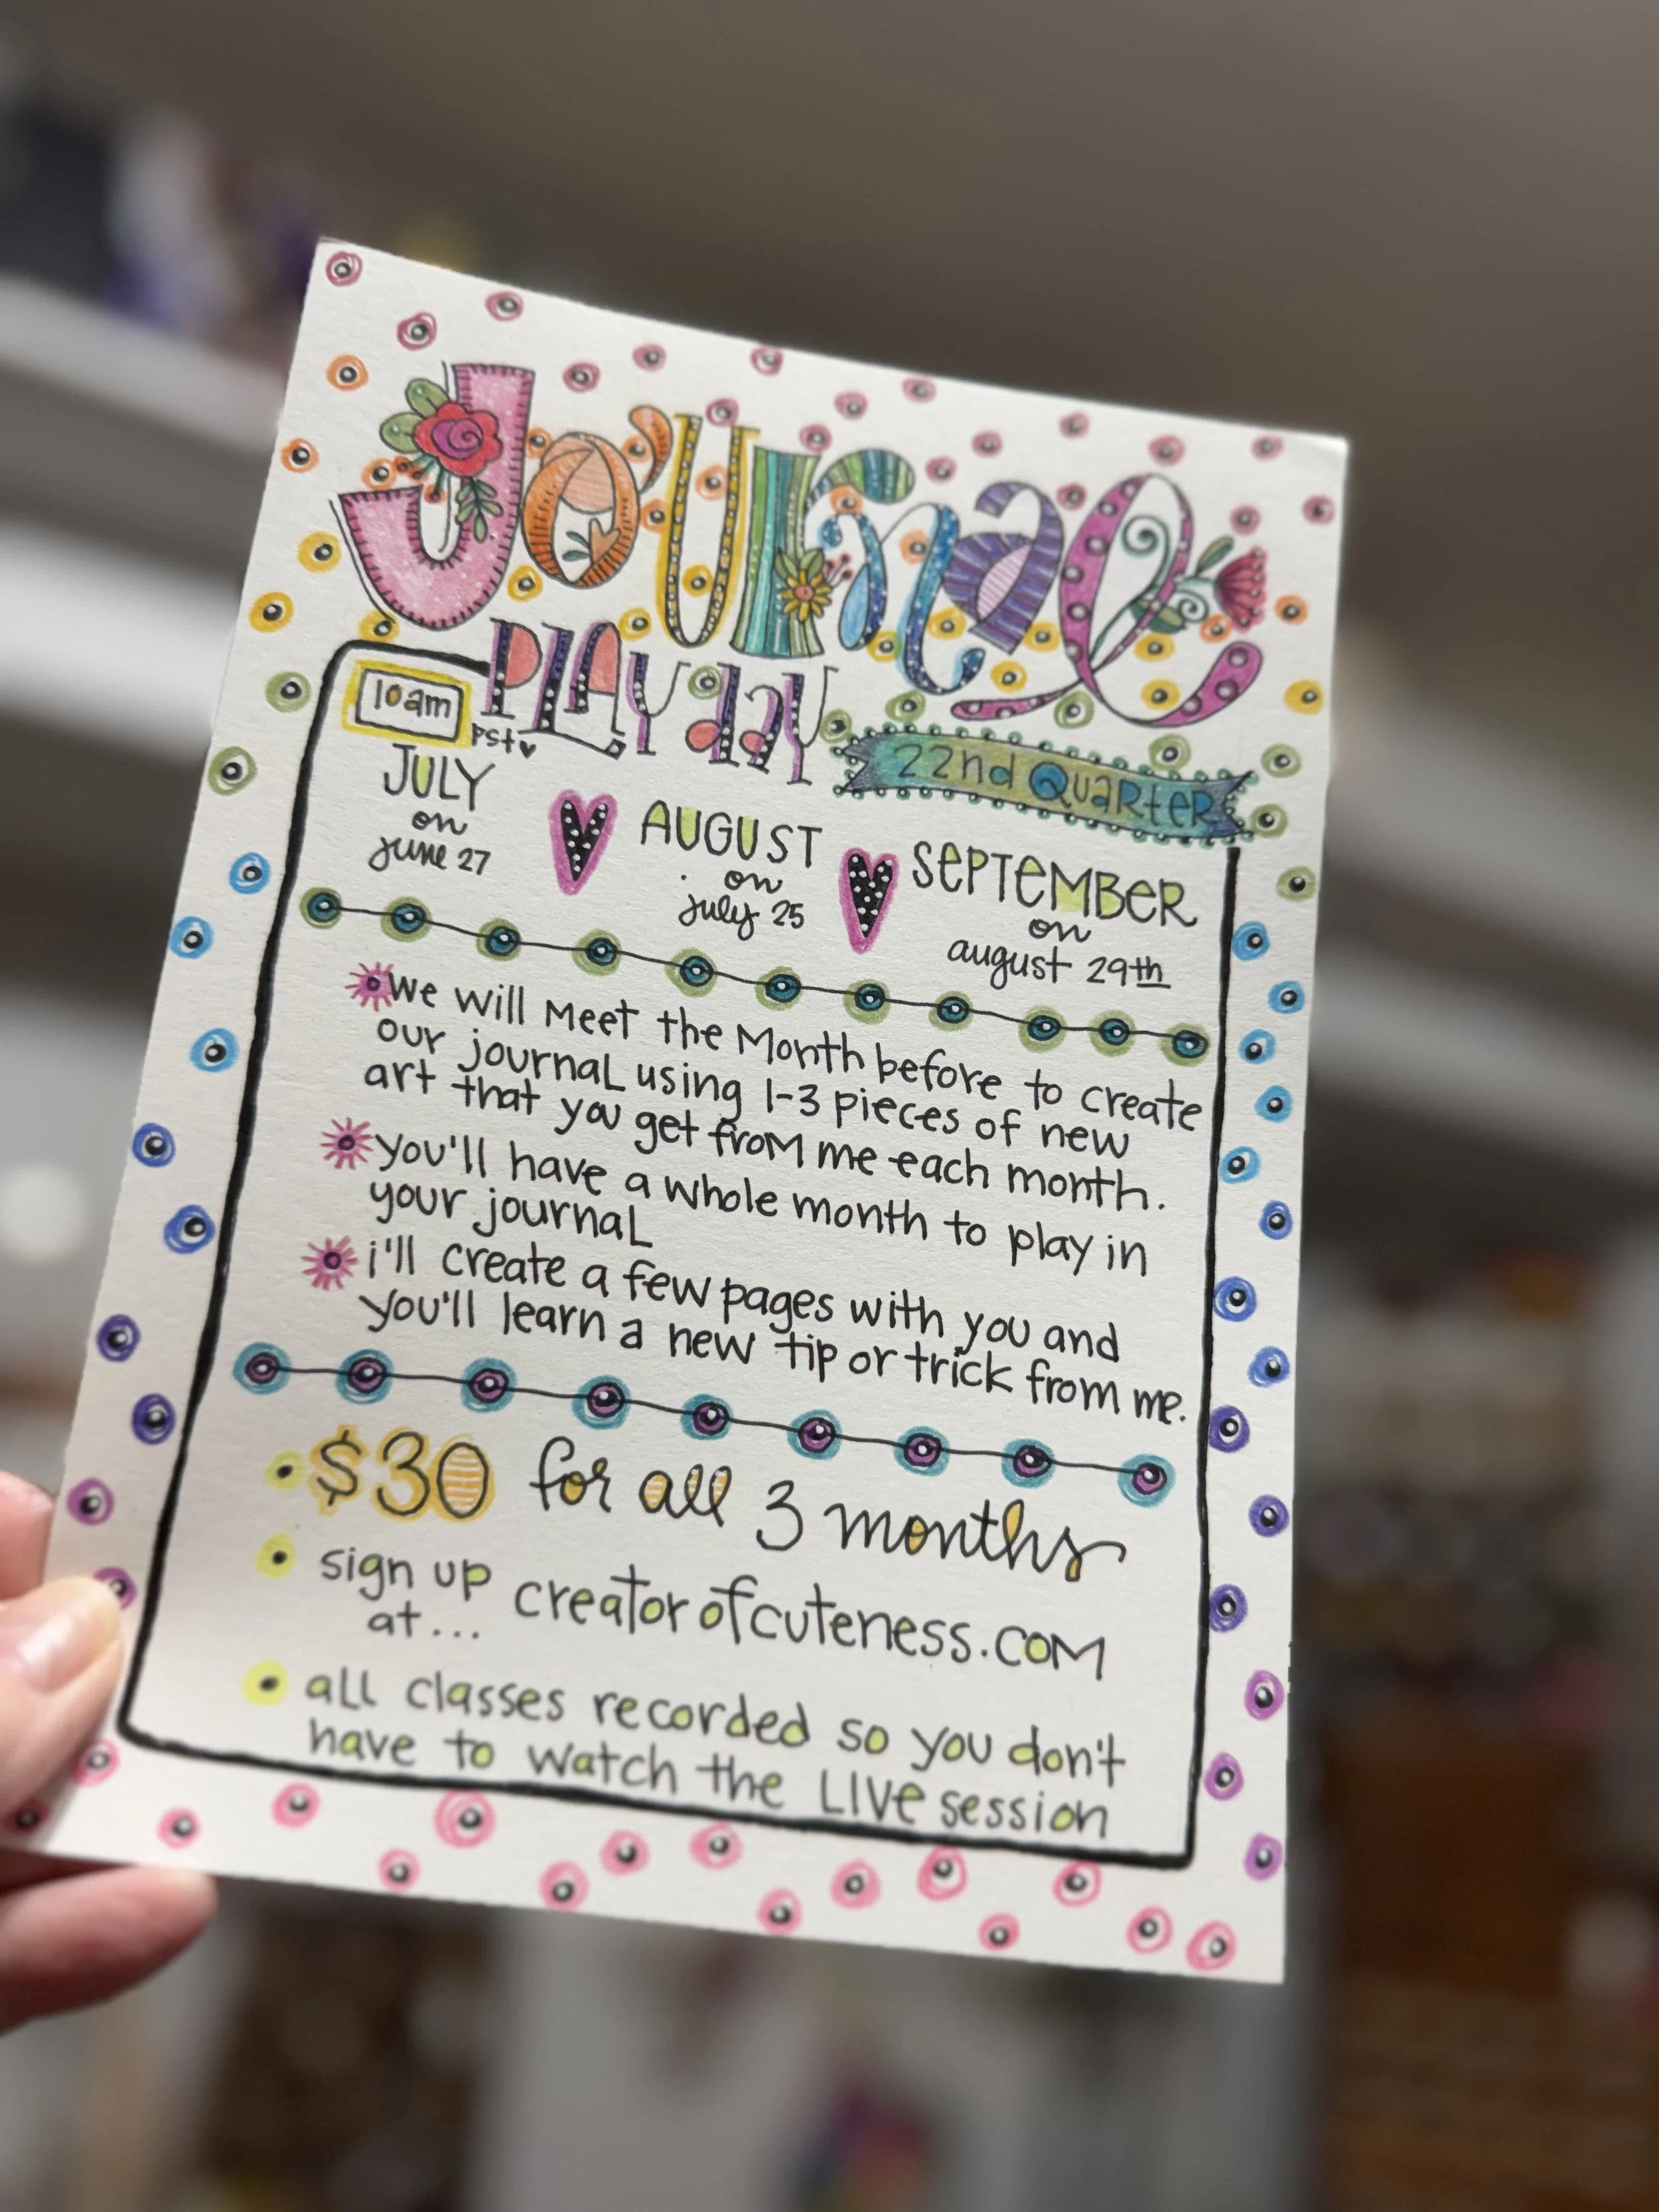 Journal
PLAY day
22nd Quarter
10am
pst
JULY
on
june 27
AUGUST
on
july 25
SEPTEMBER
on
august 29th
we will meet the month before to create
our journal using 1-3 pieces of new
art that you get from me each month.
you'll have a whole month to play in
your journal
i'll create a few pages with you and
you'll learn a new tip or trick from me.
$30 for all 3 months
sign up
at...
creatorofcuteness.com
all classes recorded so you don't
have to watch the LIVE session